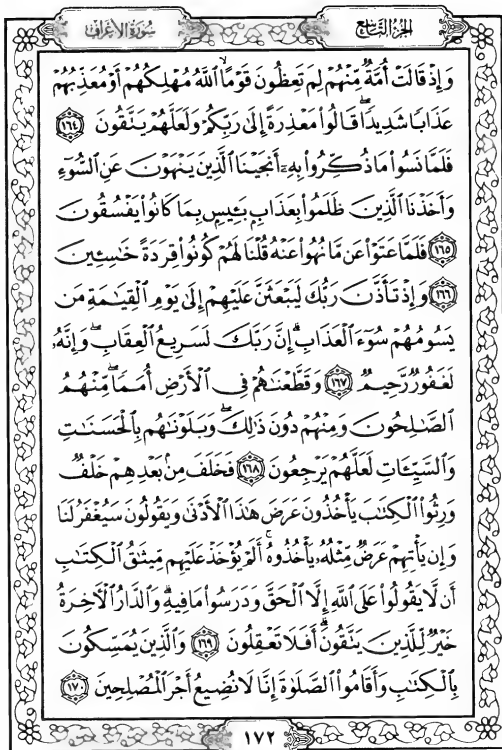 سُورَةُ الأَعْرَافِ
الجُزْءُ التَّاسِعُ
وَإِذْ قَالَتْ أُمَّةٌ مِّنْهُمْ لِمَ تَعِظُونَ قَوْمًا ۙ اللَّهُ مُهْلِكُهُمْ أَوْ مُعَذِّبُهُمْ
عَذَابًا شَدِيدًا ۖ قَالُوا۟ مَعْذِرَةً إِلَىٰ رَبِّكُمْ وَلَعَلَّهُمْ يَتَّقُونَ ١٦٤
فَلَمَّا نَسُوا۟ مَا ذُكِّرُوا۟ بِهِۦٓ أَنجَيْنَا ٱلَّذِينَ يَنْهَوْنَ عَنِ ٱلسُّوٓءِ
وَأَخَذْنَا ٱلَّذِينَ ظَلَمُوا۟ بِعَذَابٍۭ بَـِٔيسٍۭ بِمَا كَانُوا۟ يَفْسُقُونَ
١٦٥ فَلَمَّا عَتَوْا۟ عَن مَّا نُهُوا۟ عَنْهُ قُلْنَا لَهُمْ كُونُوا۟ قِرَدَةً خَـٰسِـِٔينَ
١٦٦ وَإِذْ تَأَذَّنَ رَبُّكَ لَيَبْعَثَنَّ عَلَيْهِمْ إِلَىٰ يَوْمِ ٱلْقِيَـٰمَةِ مَن
يَسُومُهُمْ سُوٓءَ ٱلْعَذَابِ ۗ إِنَّ رَبَّكَ لَسَرِيعُ ٱلْعِقَابِ ۖ وَإِنَّهُۥ
لَغَفُورٌ رَّحِيمٌ ١٦٧ وَقَطَّعْنَـٰهُمْ فِى ٱلْأَرْضِ أُمَمًا ۖ مِّنْهُمُ
ٱلصَّـٰلِحُونَ وَمِنْهُمْ دُونَ ذَٰلِكَ ۖ وَبَلَوْنَـٰهُم بِٱلْحَسَنَـٰتِ
وَٱلسَّيِّـَٔاتِ لَعَلَّهُمْ يَرْجِعُونَ ١٦٨ فَخَلَفَ مِنۢ بَعْدِهِمْ خَلْفٌ
وَرِثُوا۟ ٱلْكِتَـٰبَ يَأْخُذُونَ عَرَضَ هَـٰذَا ٱلْأَدْنَىٰ وَيَقُولُونَ سَيُغْفَرُ لَنَا
وَإِن يَأْتِهِمْ عَرَضٌ مِّثْلُهُۥ يَأْخُذُوهُ ۚ أَلَمْ يُؤْخَذْ عَلَيْهِم مِّيثَـٰقُ ٱلْكِتَـٰبِ
أَن لَّا يَقُولُوا۟ عَلَى ٱللَّهِ إِلَّا ٱلْحَقَّ وَدَرَسُوا۟ مَا فِيهِ ۗ وَٱلدَّارُ ٱلْـَٔاخِرَةُ
خَيْرٌ لِّلَّذِينَ يَتَّقُونَ ۗ أَفَلَا تَعْقِلُونَ ١٦٩ وَٱلَّذِينَ يُمَسِّكُونَ
بِٱلْكِتَـٰبِ وَأَقَامُوا۟ ٱلصَّلَوٰةَ إِنَّا لَا نُضِيعُ أَجْرَ ٱلْمُصْلِحِينَ ١٧٠
١٧٢